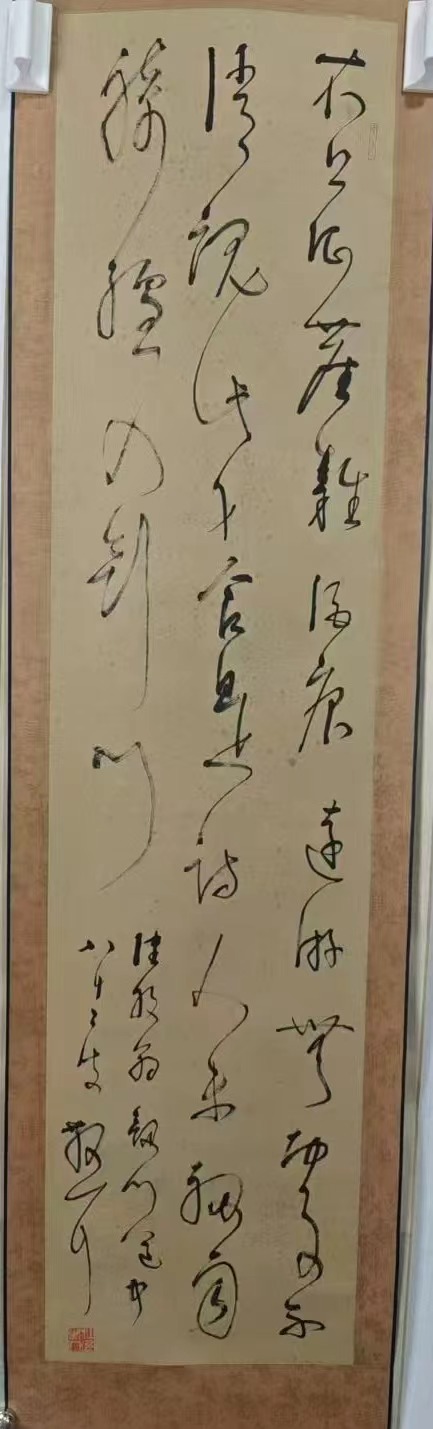 衣上征尘杂酒痕远游无处不
消魂此身合是诗人未细雨
骑驴入剑门
陆放翁剑门道中
八十二叟散之